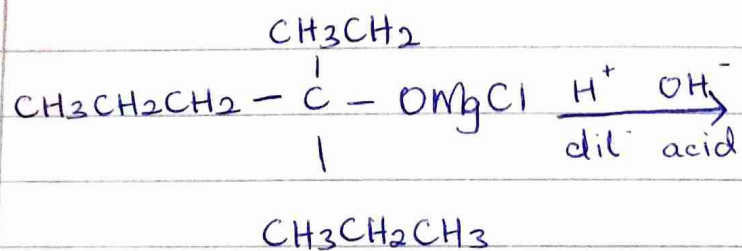 CH3CH2
CH3CH2CH2 - C - OMgCl H+ OH-
dil. acid
CH3CH2CH3